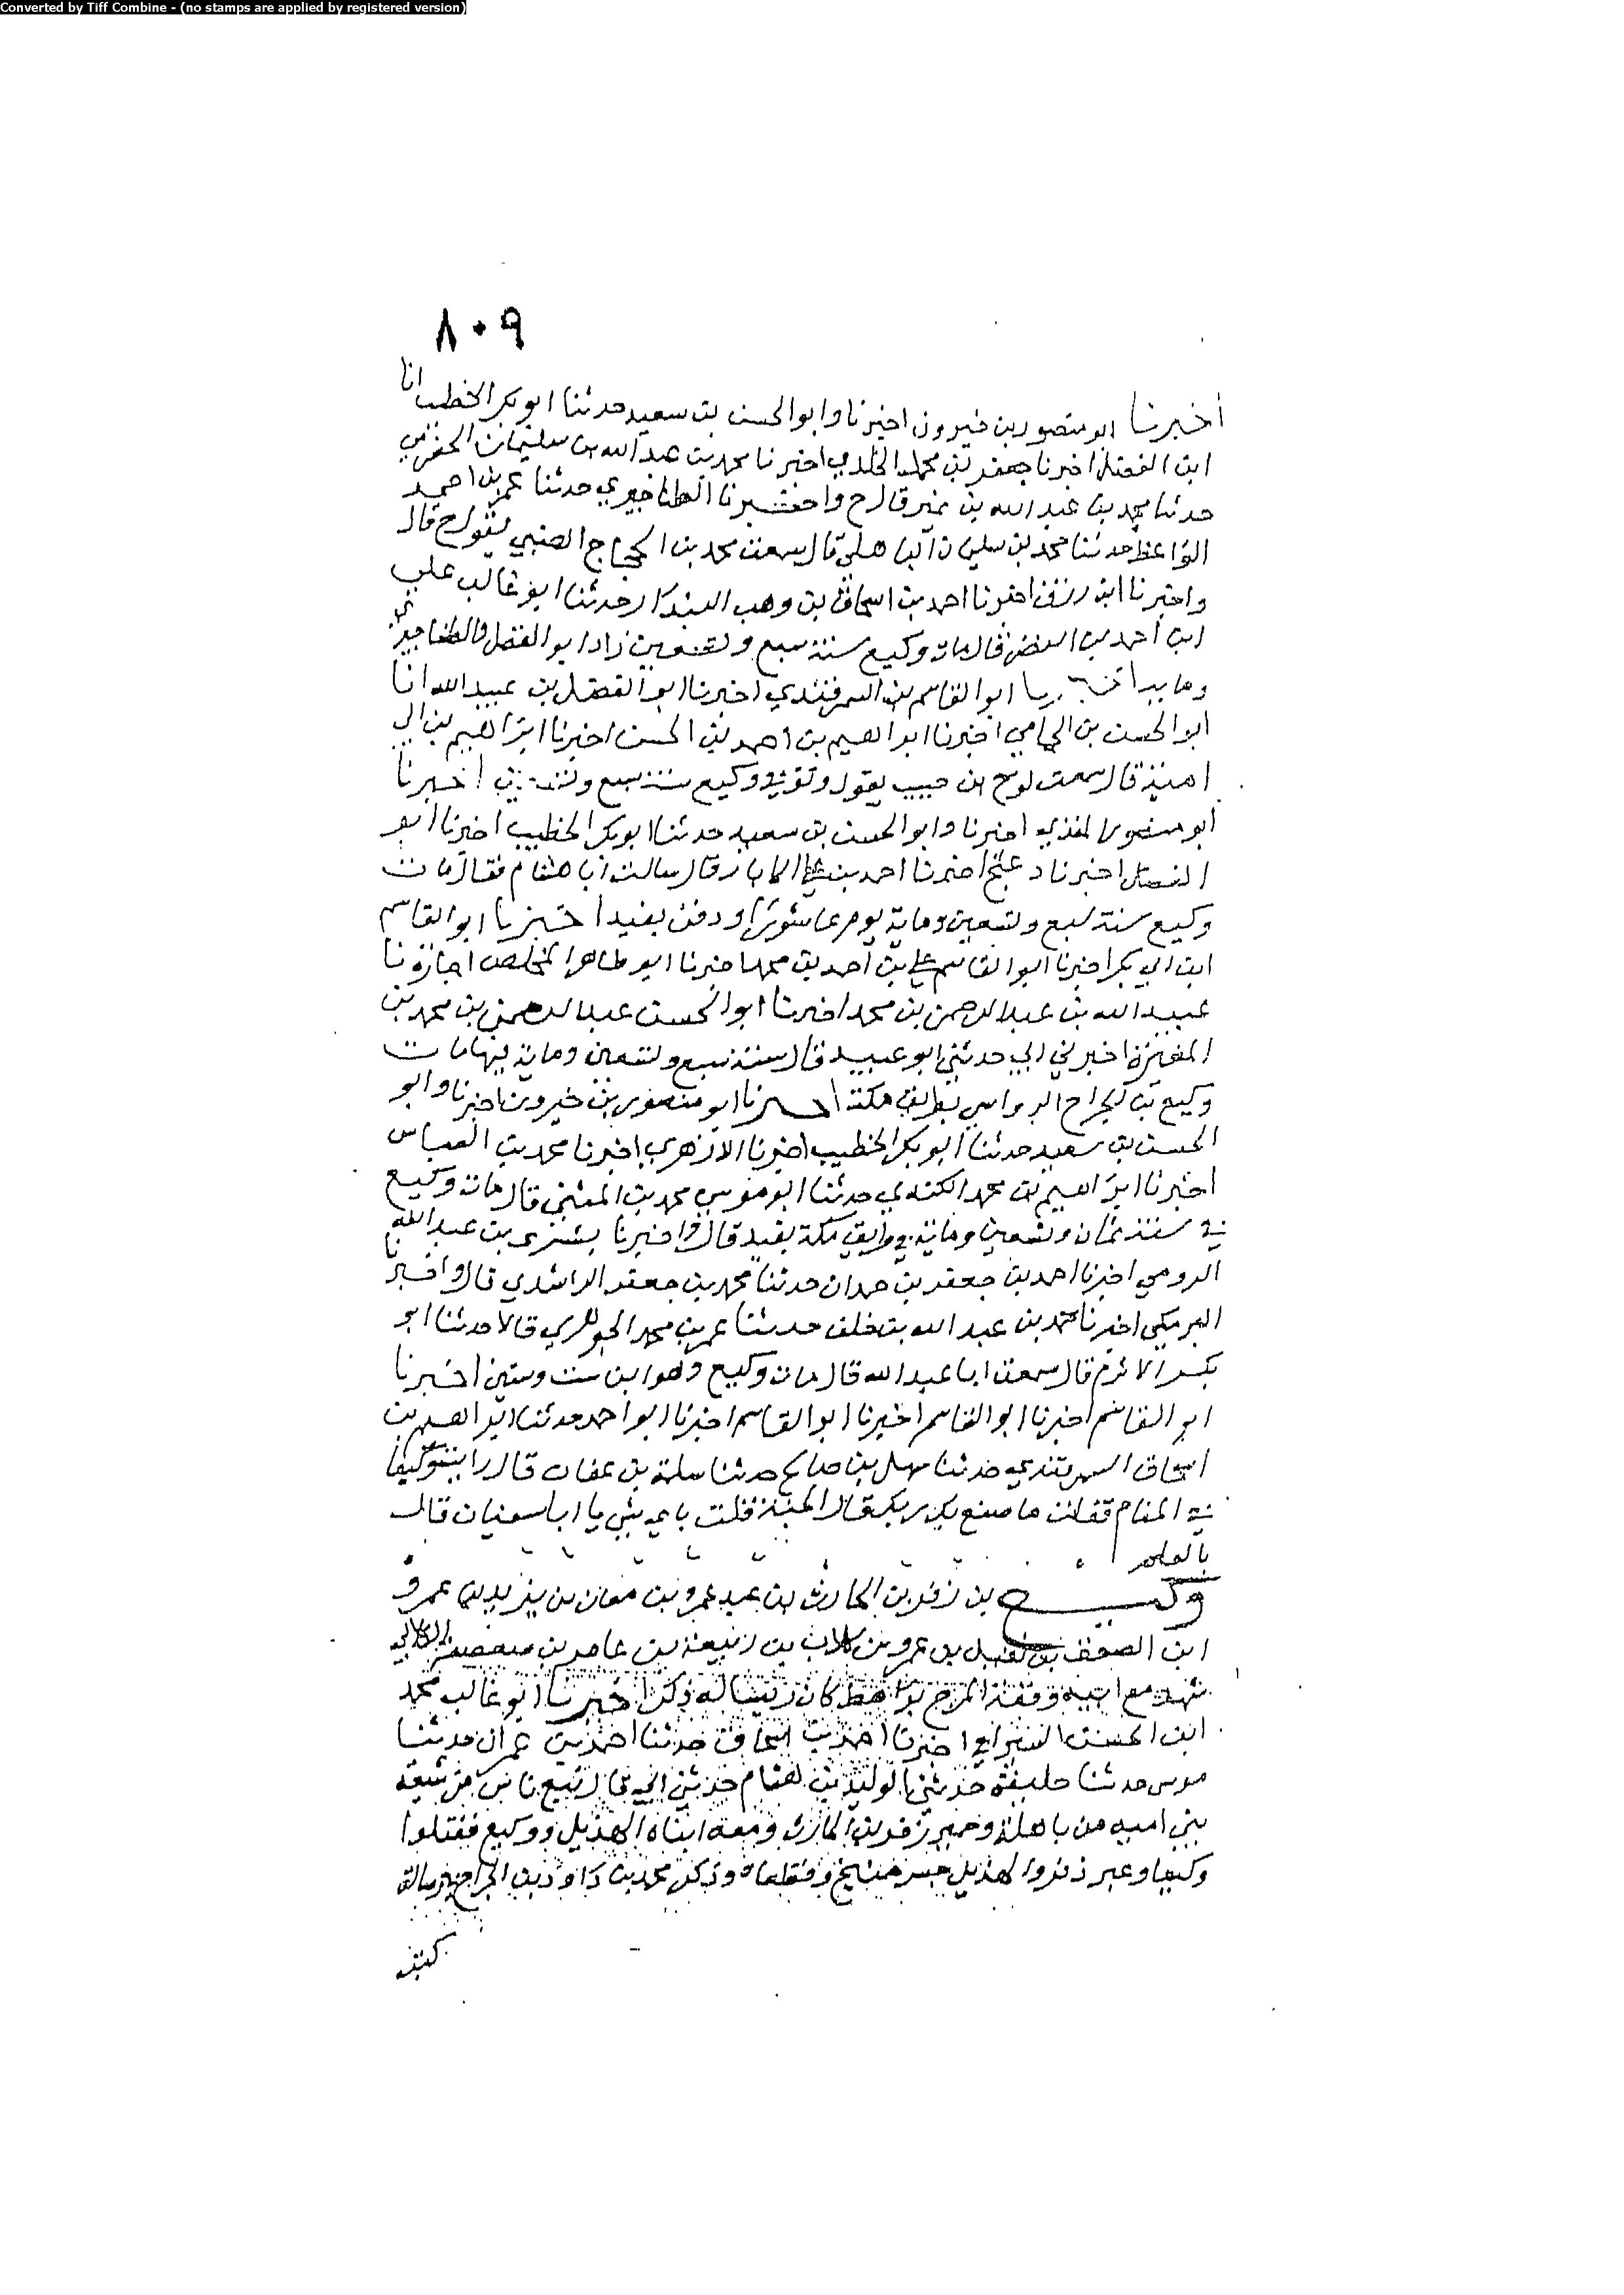 Converted by Tiff Combine - (no stamps are applied by registered version)
٨٠٩
اخبرنا ابو منصور بن خيرون اخبرنا وابو الحسن بن سعيد حدثنا ابو بكر الخطيب انا
ابن الفضل اخبرنا جعفر بن محمد الخلدي اخبرنا محمد بن عبد الله بن سليمان الحضرمي
حدثنا محمد بن عبد الله بن نمير قال ح واخبرنا الطناجيري حدثنا عمر بن احمد
الواعظ حدثنا محمد بن سليمان الباهلي قال سمعت محمد بن الحجاج الضبي يقول ح قال
واخبرنا ابن رزق اخبرنا احمد بن اسحاق بن وهب البندار حدثنا ابو غالب علي
ابن احمد بن النضر قال مات وكيع سنة سبع وتسعين زاد ابو الفضل والطناجيري
وماية اخبرنا ابو القاسم بن السمرقندي اخبرنا ابو الفضل بن عبيد الله انا
ابو الحسن بن الحمامي اخبرنا ابراهيم بن احمد بن الحسن اخبرنا ابراهيم بن ابي
امية قال سمعت نوح بن حبيب يقول وتوفي وكيع سنة سبع وتسعين اخبرنا
ابو منصور المقري اخبرنا وابو الحسن بن سعيد حدثنا ابو بكر الخطيب اخبرنا ابو
الفضل اخبرنا دعلج اخبرنا احمد بن علي الابار قال سالت ابا هشام فقال مات
وكيع سنة سبع وتسعين وماية يوم عاشورا ودفن بفيد اخبرنا ابو القاسم
ابن ابي بكر اخبرنا ابو القاسم علي بن احمد بن محمد اخبرنا ابو طاهر المخلص اجازة نا
عبيد الله بن عبد الرحمن بن محمد اخبرنا ابو الحسن عبد الرحمن بن محمد بن
المغيرة اخبرني ابي حدثني ابو عبيد قال سنة سبع وتسعين وماية فيها مات
وكيع بن الجراح الرواسي بطريق مكة اخبرنا ابو منصور بن خيرون اخبرنا وابو
الحسن بن سعيد حدثنا ابو بكر الخطيب اخبرنا الازهري اخبرنا محمد بن العباس
اخبرنا ابراهيم بن محمد الكندي حدثنا ابو موسى محمد بن المثنى قال مات وكيع
في سنة ثمان وتسعين وماية في طريق مكة بفيد قال واخبرنا بشرى بن عبد الله
الرومي اخبرنا احمد بن جعفر بن حمدان حدثنا محمد بن جعفر الراشدي قال واخبرنا
البرمكي اخبرنا محمد بن عبد الله بن خلف حدثنا عمر بن محمد الجوهري قالا حدثنا ابو
بكر الاثرم قال سمعت ابا عبد الله قال مات وكيع وهو ابن ست وستين اخبرنا
ابو القاسم اخبرنا ابو القاسم اخبرنا ابو القاسم اخبرنا ابو احمد حدثنا ابراهيم بن
اسحاق السمرقندي حدثنا سهل بن صالح حدثنا سلمة بن عفان قال رايت وكيعا
في المنام فقلت ما صنع بك ربك قال الجنة قلت باي شي يا ابا سفيان قال
بالعلم
وكيع بن زفر بن الحارث بن عبد عمرو بن معاز بن يزيد بن عمرو
ابن الصعق بن نفيل بن عمرو بن كلاب بن ربيعة بن عامر بن صعصعة الكلابي
شهد مع ابيه وقعة المرج براهط كان رئيسا له ذكر اخبرنا ابو غالب محمد
ابن الحسن السيرافي اخبرنا احمد بن اسحاق حدثنا احمد بن عمران حدثنا
موسى حدثنا خليفة حدثني الوليد بن هشام حدثني ابي قال تبع ناس من شيعة
بني امية من باهلة وحمير زفر بن الحارث ومعه ابناه الهذيل ووكيع فقتلوا
وكيعا وعبر زفر والهذيل جسر منبج وقطعاه وذكر محمد بن داود بن الجراح